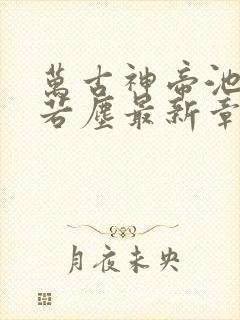 萬古神帝池
若塵最新章
月夜未央